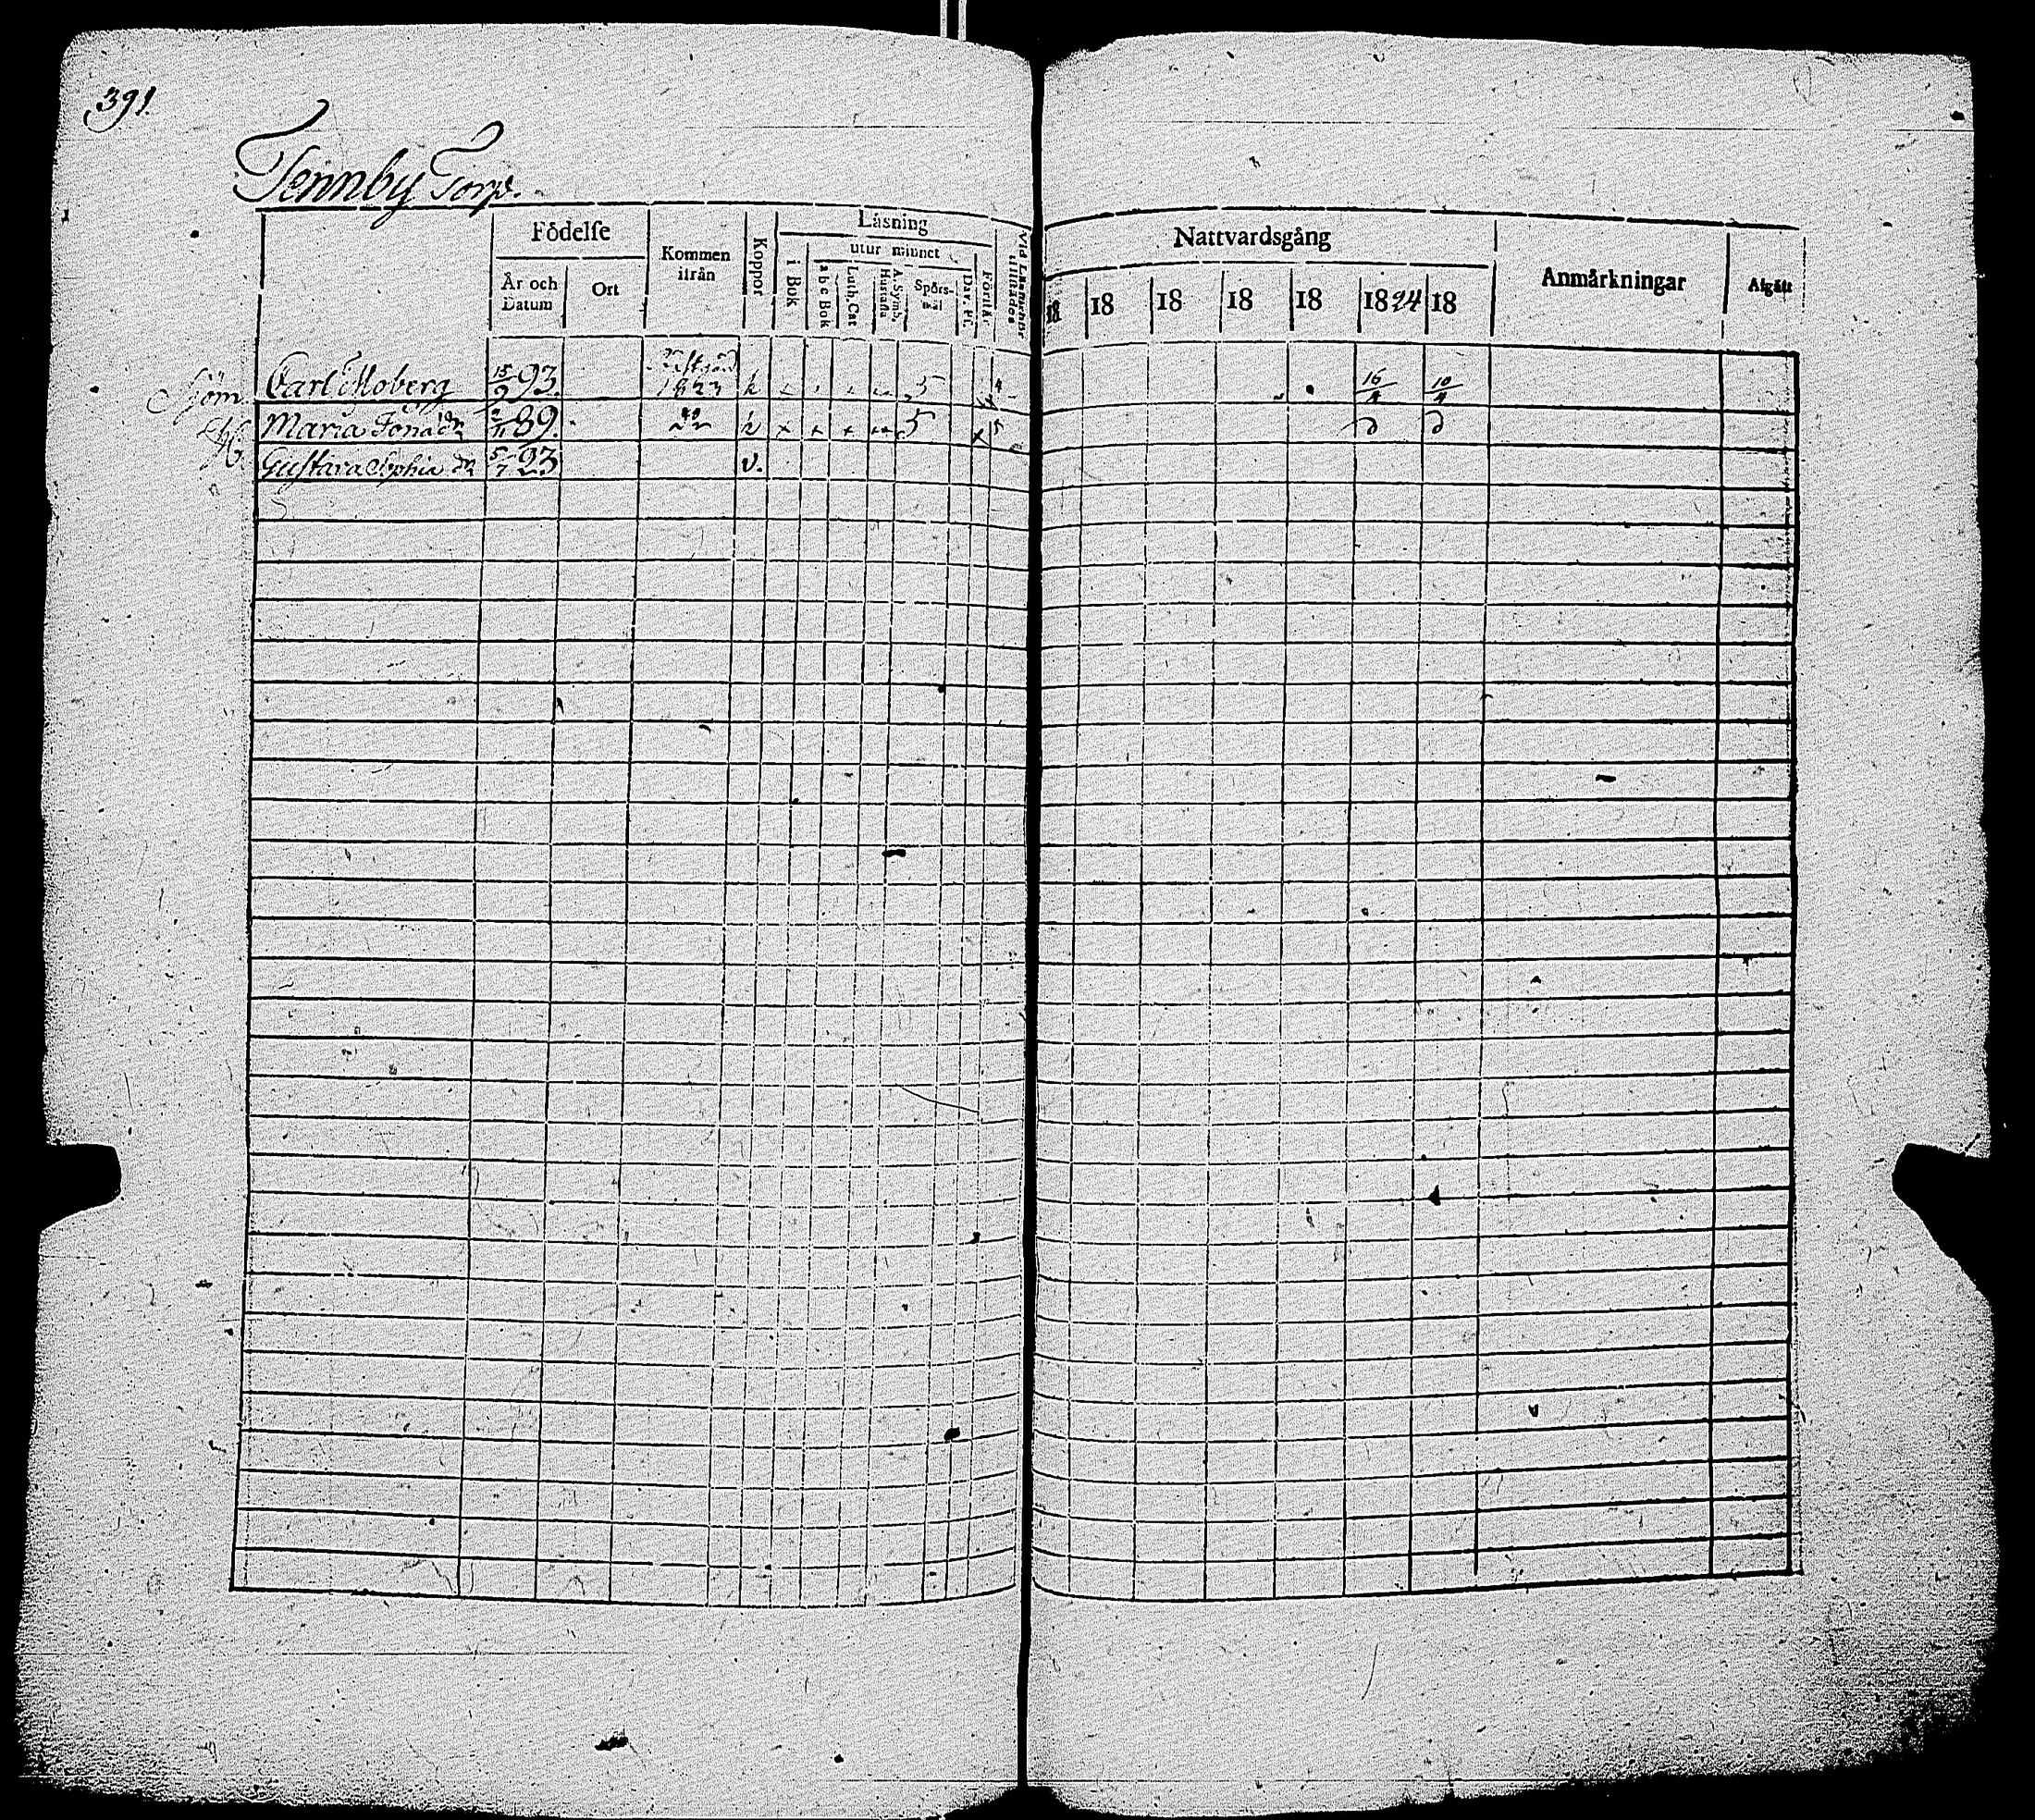 391.
Tennby Torp.
Födelse
År och Datum
Ort
Kommen ifrån
Koppor
Läsning
i Bok
utur minnet
a b c Bok
Luth. Cat
A. Symb. Hustafla
Spörsmål
Dav. Ps.
Förstår
Nattvardsgång
18 18 18 18 18 1824 18
Anmärkningar
Afgått
Sjöm. Carl Moberg 15/9 93. 1823 k 5 4 16/4 10/4
H. Maria Jonä dr 2/11 89. k x + + 5 x 5
Gustava Sophia dr 5/7 23 v.